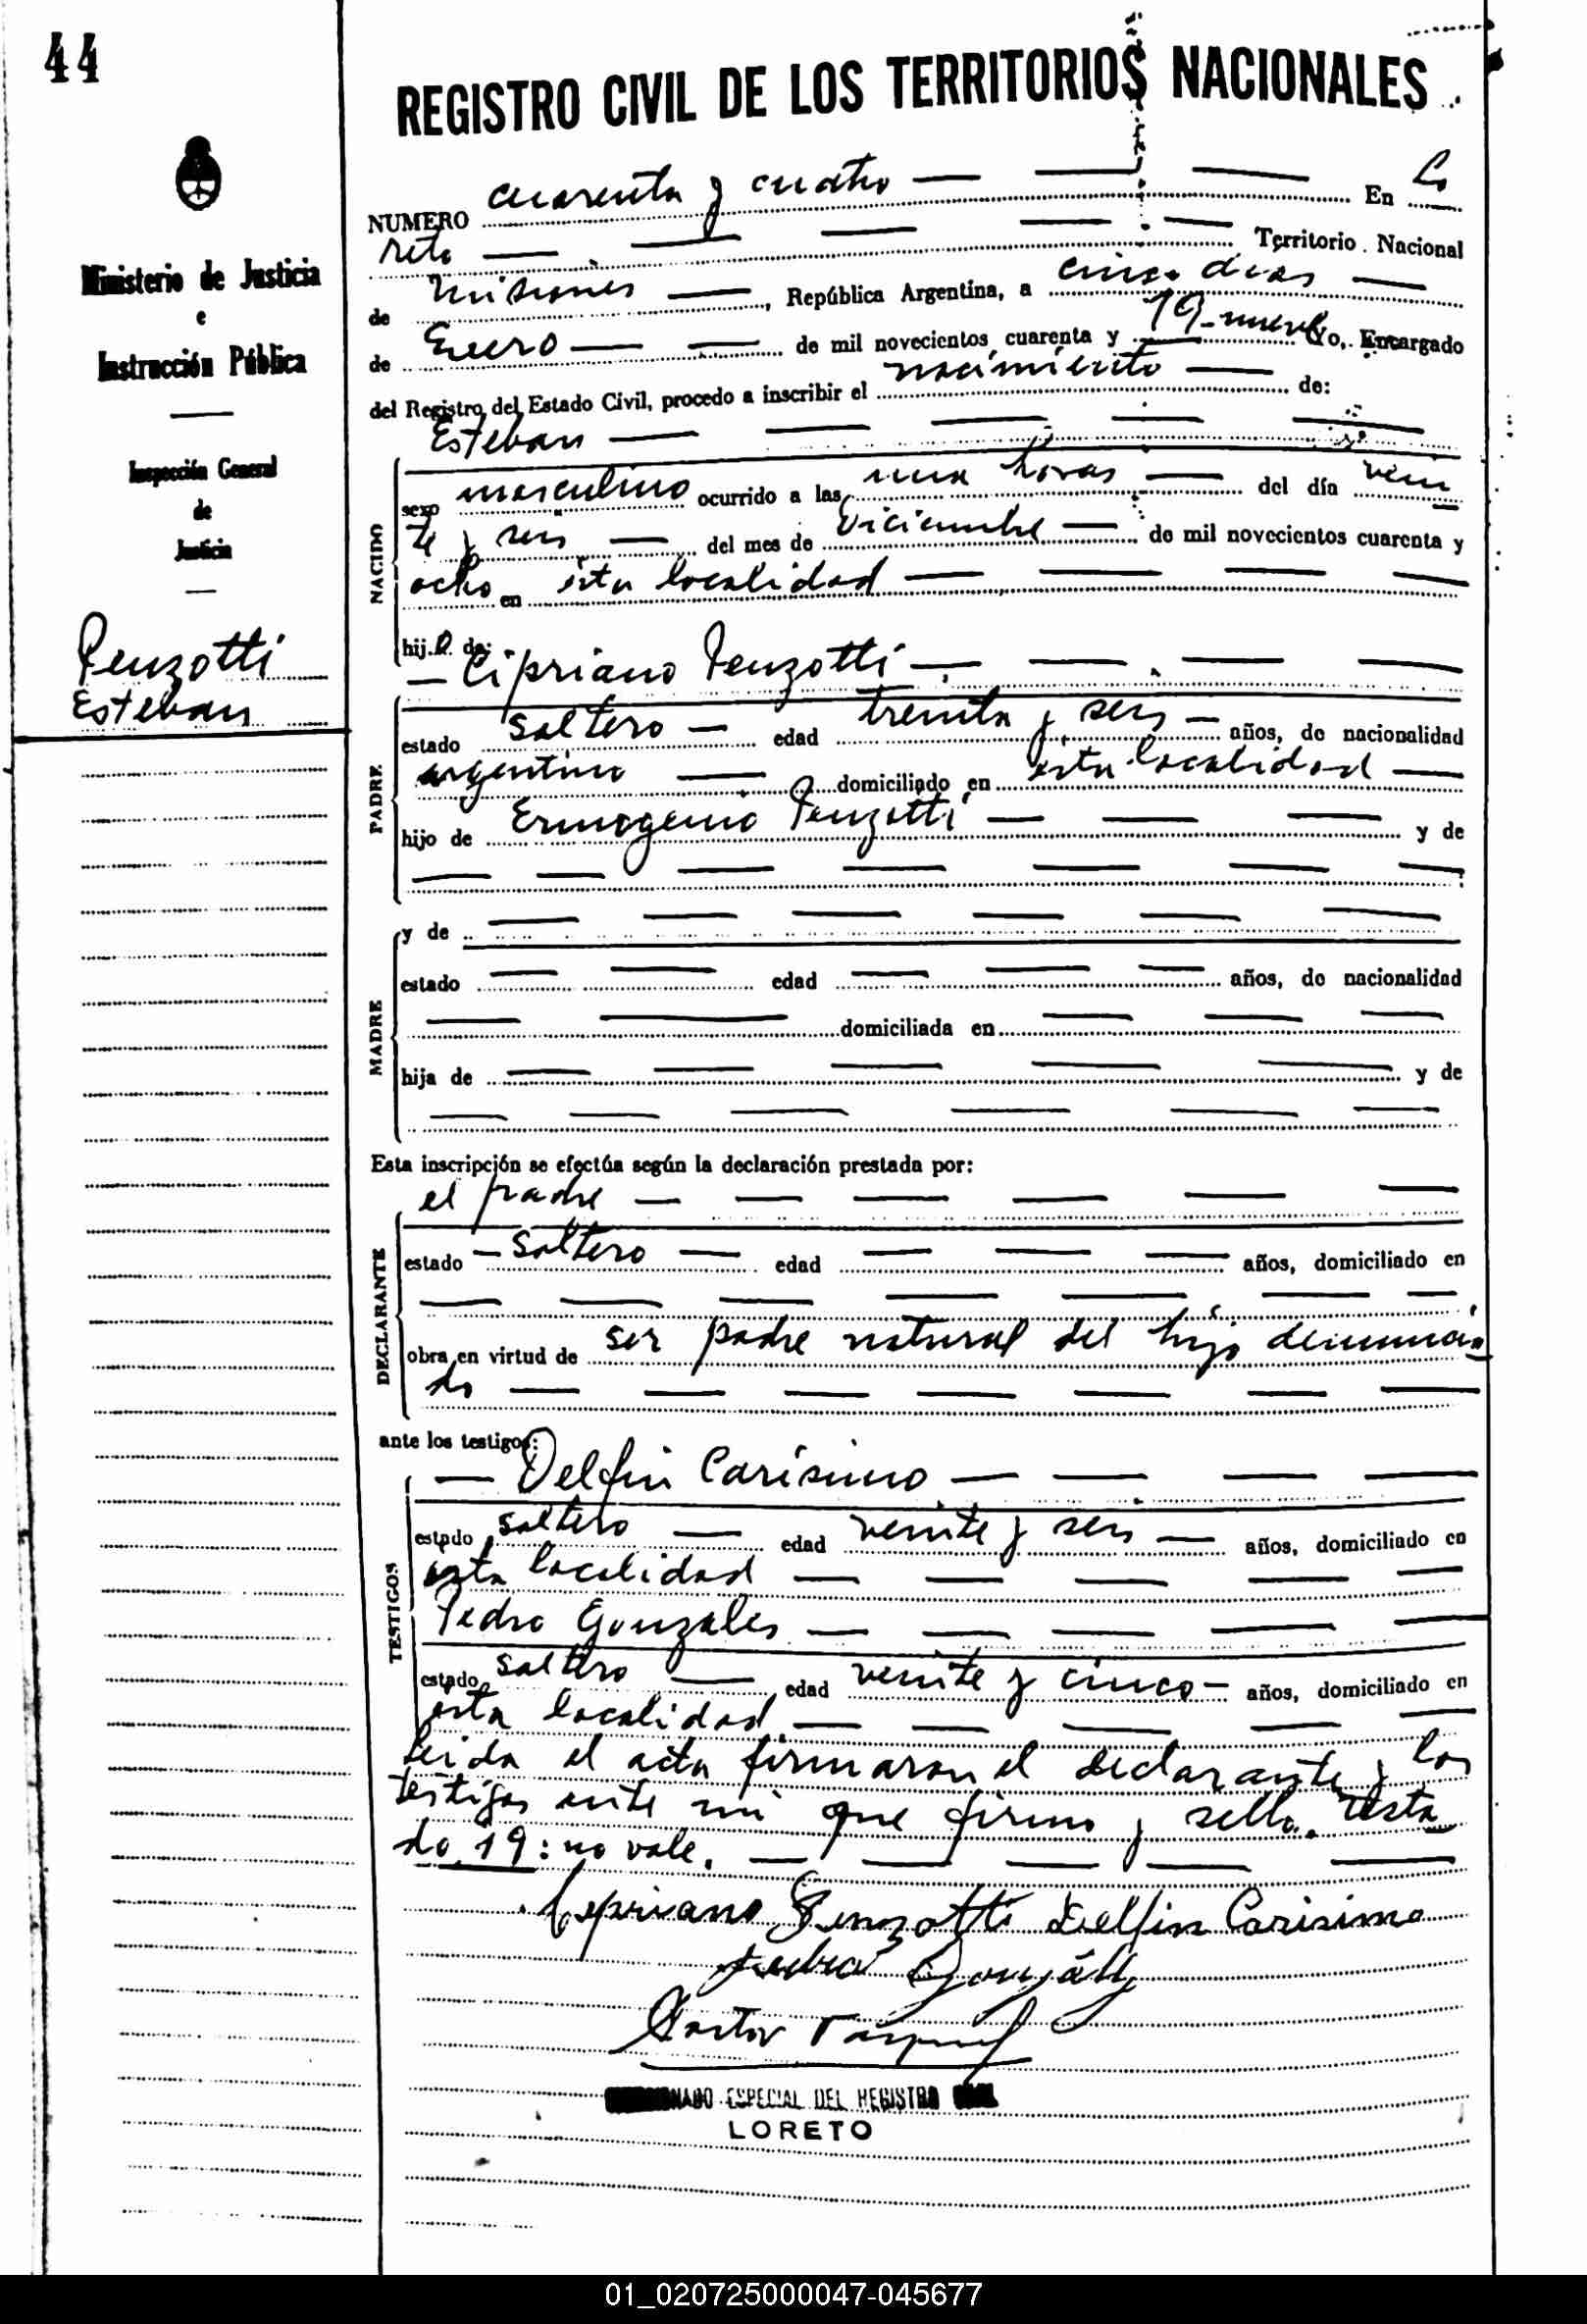 44
REGISTRO CIVIL DE LOS TERRITORIOS NACIONALES
Ministerio de Justicia
e
Instrucción Pública
Inspección General
de
Justicia
Penzotti
Esteban
NUMERO cuarenta y cuatro — — — En Lo
reto — — — — — Territorio Nacional
de Misiones —, República Argentina, a cinco dias —
de Enero — — de mil novecientos cuarenta y 19 nueve Yo, Encargado
del Registro del Estado Civil, procedo a inscribir el nacimiento — de:
Esteban — — — — —
NACIDO
sexo masculino ocurrido a las una horas — del día vein
te y seis — del mes de Diciembre — de mil novecientos cuarenta y
ocho en esta localidad — — — —
hijo de:
— Cipriano Penzotti — — — —
PADRE
estado soltero — edad treinta y seis — años, de nacionalidad
argentino — domiciliado en esta localidad —
hijo de Ermogenio Penzotti — — — y de
— — — — — — —
MADRE
y de — — — — — —
estado — — edad — — — años, de nacionalidad
— — domiciliada en — — —
hija de — — — — — y de
— — — — — —
Esta inscripción se efectúa según la declaración prestada por:
el padre — — — — — —
DECLARANTE
estado — soltero — edad — — — años, domiciliado en
— — — — — — —
obra en virtud de ser padre natural del hijo denuncia
do — — — — — —
ante los testigos:
— Delfin Carísimo — — — —
TESTIGOS
estado soltero — edad veinte y seis — años, domiciliado en
esta localidad — — — — —
Pedro Gonzales — — — — —
estado soltero — edad veinte y cinco — años, domiciliado en
esta localidad — — — — —
Leida el acta firmaron el declarante y los
testigos ante mi que firmo y sello. Testa
do 19: no vale. — — — — —
Cipriano Penzotti Delfin Carisimo
Pedro Gonzáles
ESPECIAL DEL REGISTRO
LORETO
01_020725000047-045677